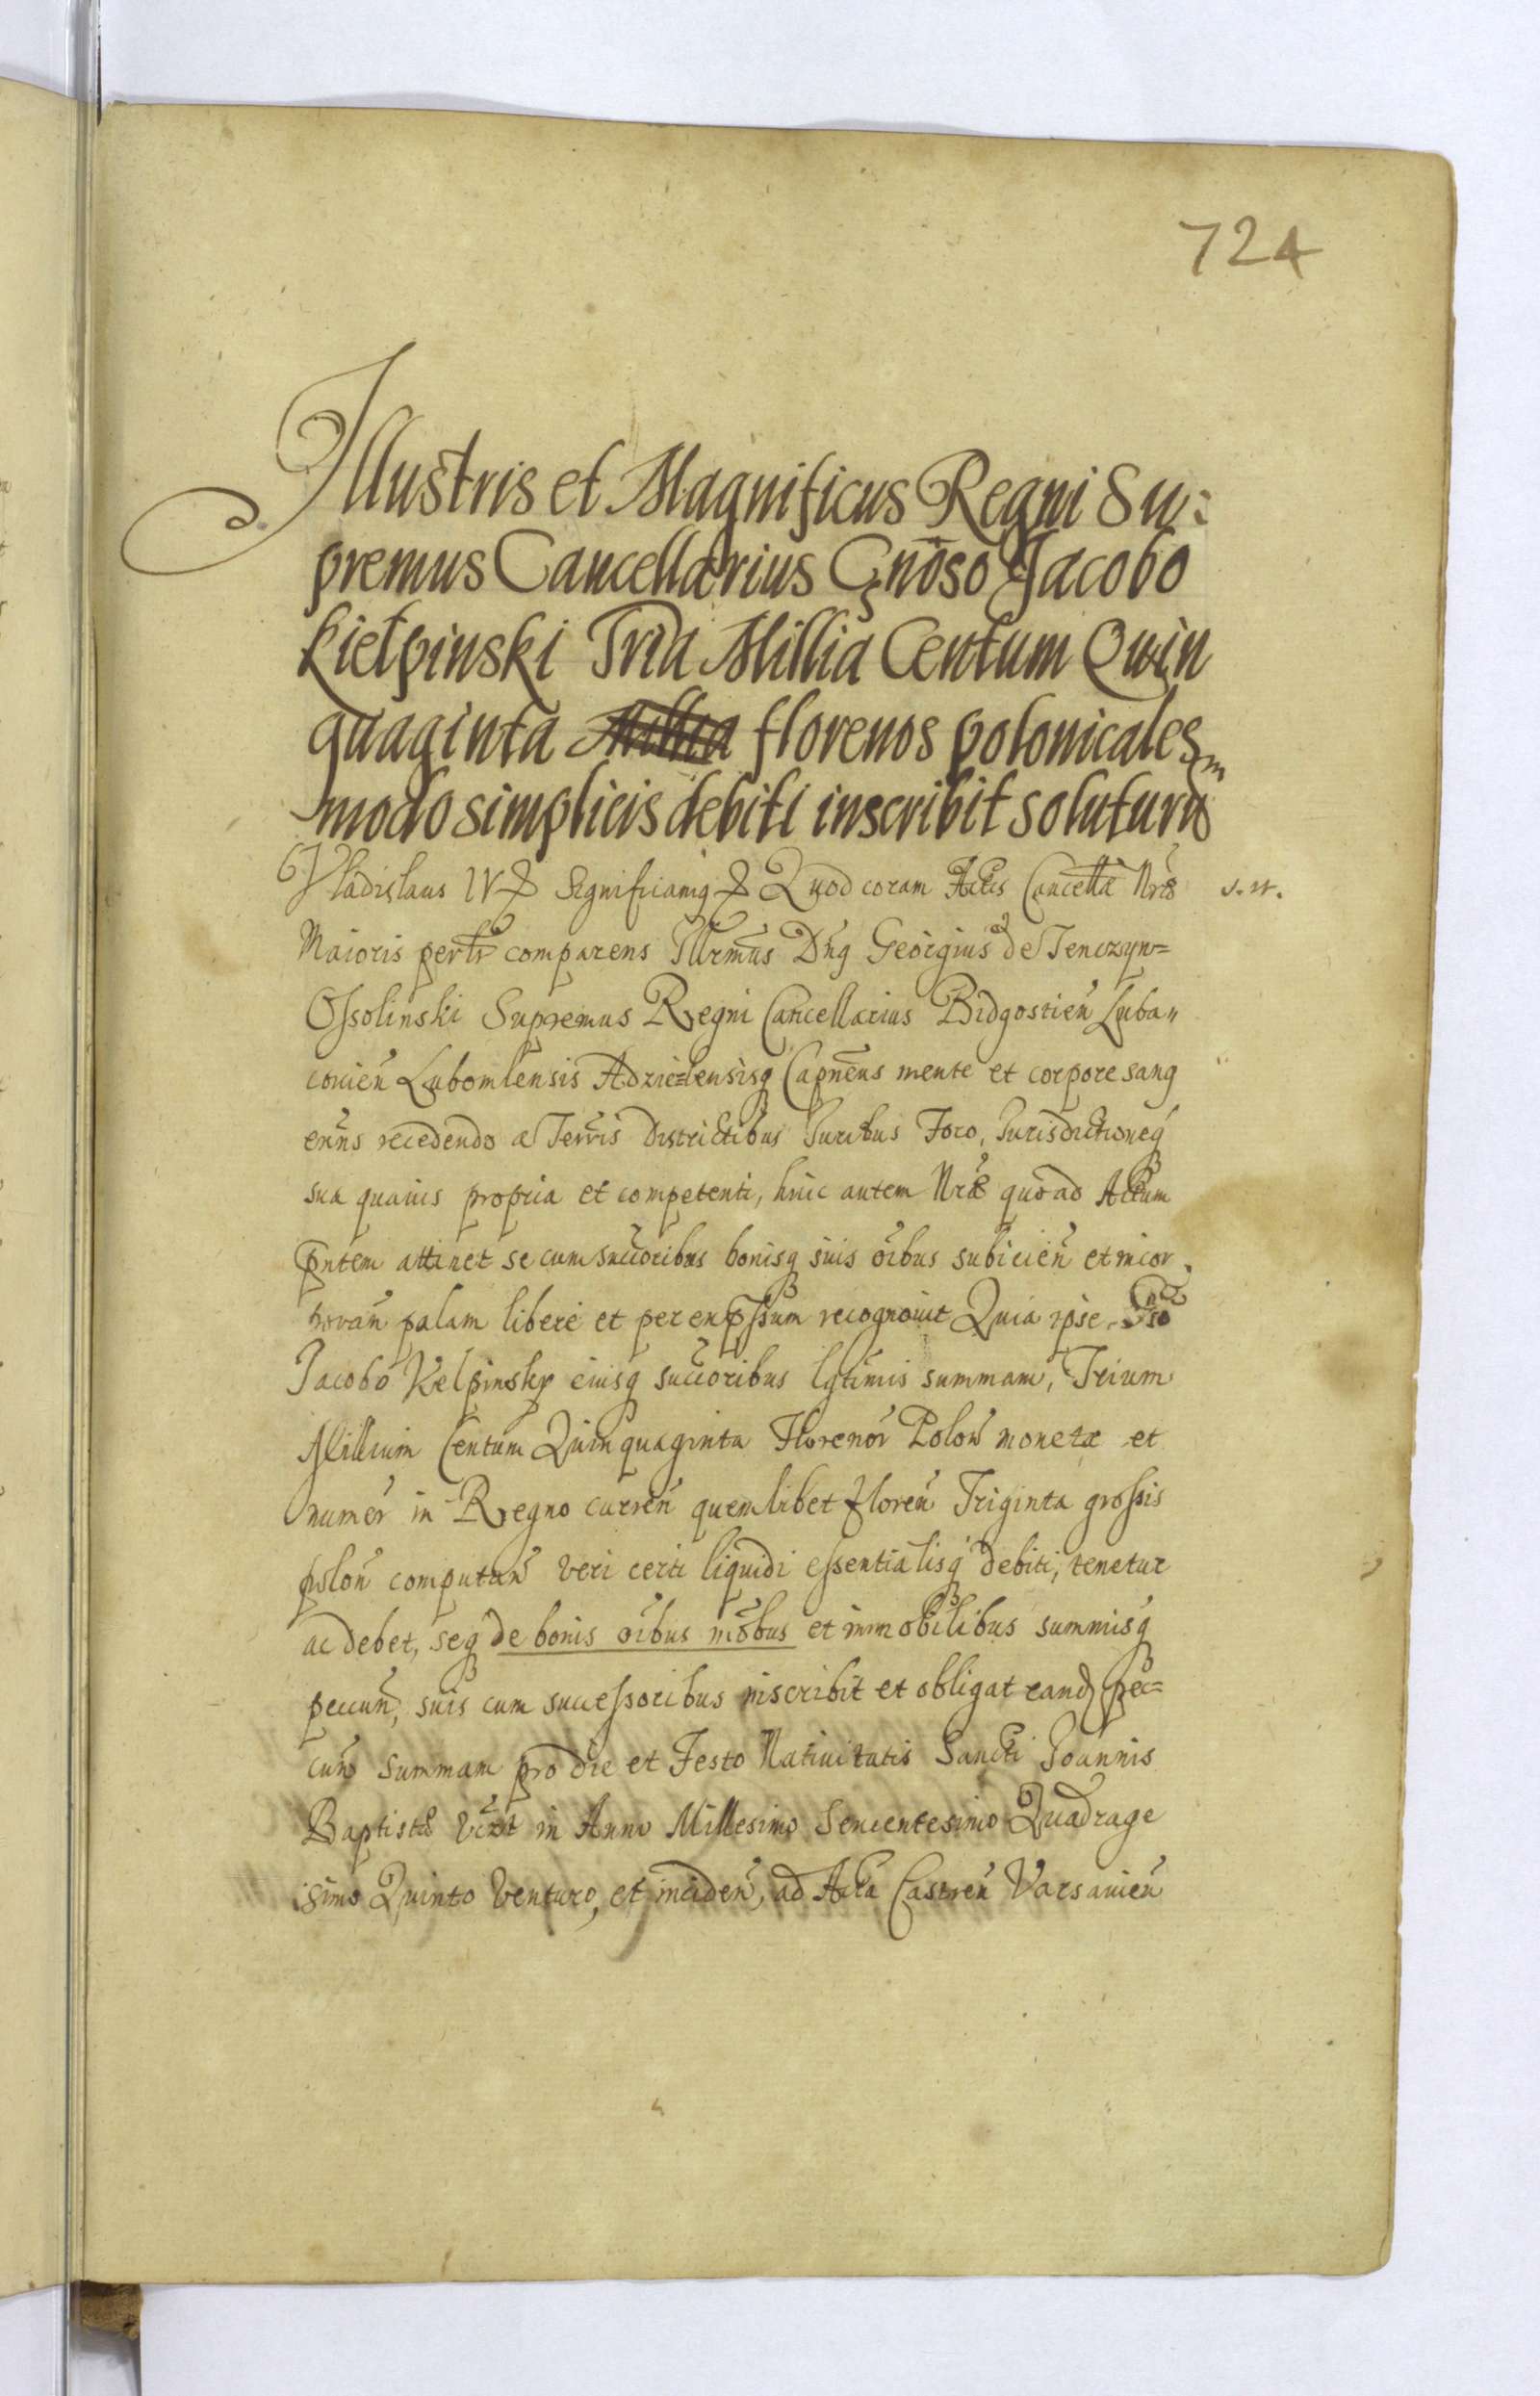 724
Illustris et Magnificus Regni Su:
premus Cancellarius Gnōso Jacobo
Kiełpinski Tria Millia Centum Quin
quaginta Millia florenos polonicales
modo simplicis debiti inscribit soluturū
Vladislaus IV Significamq Quod coram Actis Cancellae Nrae
s. n.
Maioris persr comparens Illrmus Dnq Georgius de Tenczyn=
Ossolinski Supremus Regni Cancellarius Bidgostien Luba"
conien Lubomlensis Adzielensisq Capnens mente et corpore sang
enns recedendo a Terris Districtibus Juribus Foro, Jurisdictioneq
sua quavis propria et competenti, huic autem Nrae quoad Actum
pntem attinet se cum succoribus bonisq suis oibus subicien et incor
poran palam libere et per expssum recognovit Quia ipse Gnso
Jacobo Kelpinsky eiusq succoribus lgtimis summam, Trium
Millium Centum Quinquaginta Florenor Polon monetae et
numer in Regno curren quemlibet Floren Triginta grossis
polon computan veri certi liquidi essentialisq debiti, tenetur
ac debet, seq de bonis oibus mobus et immobilibus summisq
peccun, suis cum successoribus inscribit et obligat eand pec=
cun summam pro die et Festo Nativitatis Sancti Joannis
Baptistae vizt in Anno Millesimo Sexcentesimo Quadrage
simo Quinto venturo, et inciden, ad Acta Castren Varsavien